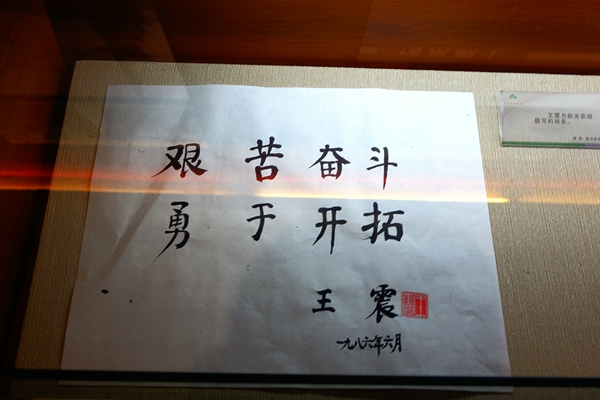 艰苦奋斗
勇于开拓
王震
一九八六年六月
王震为赵光农场
题写的场名。